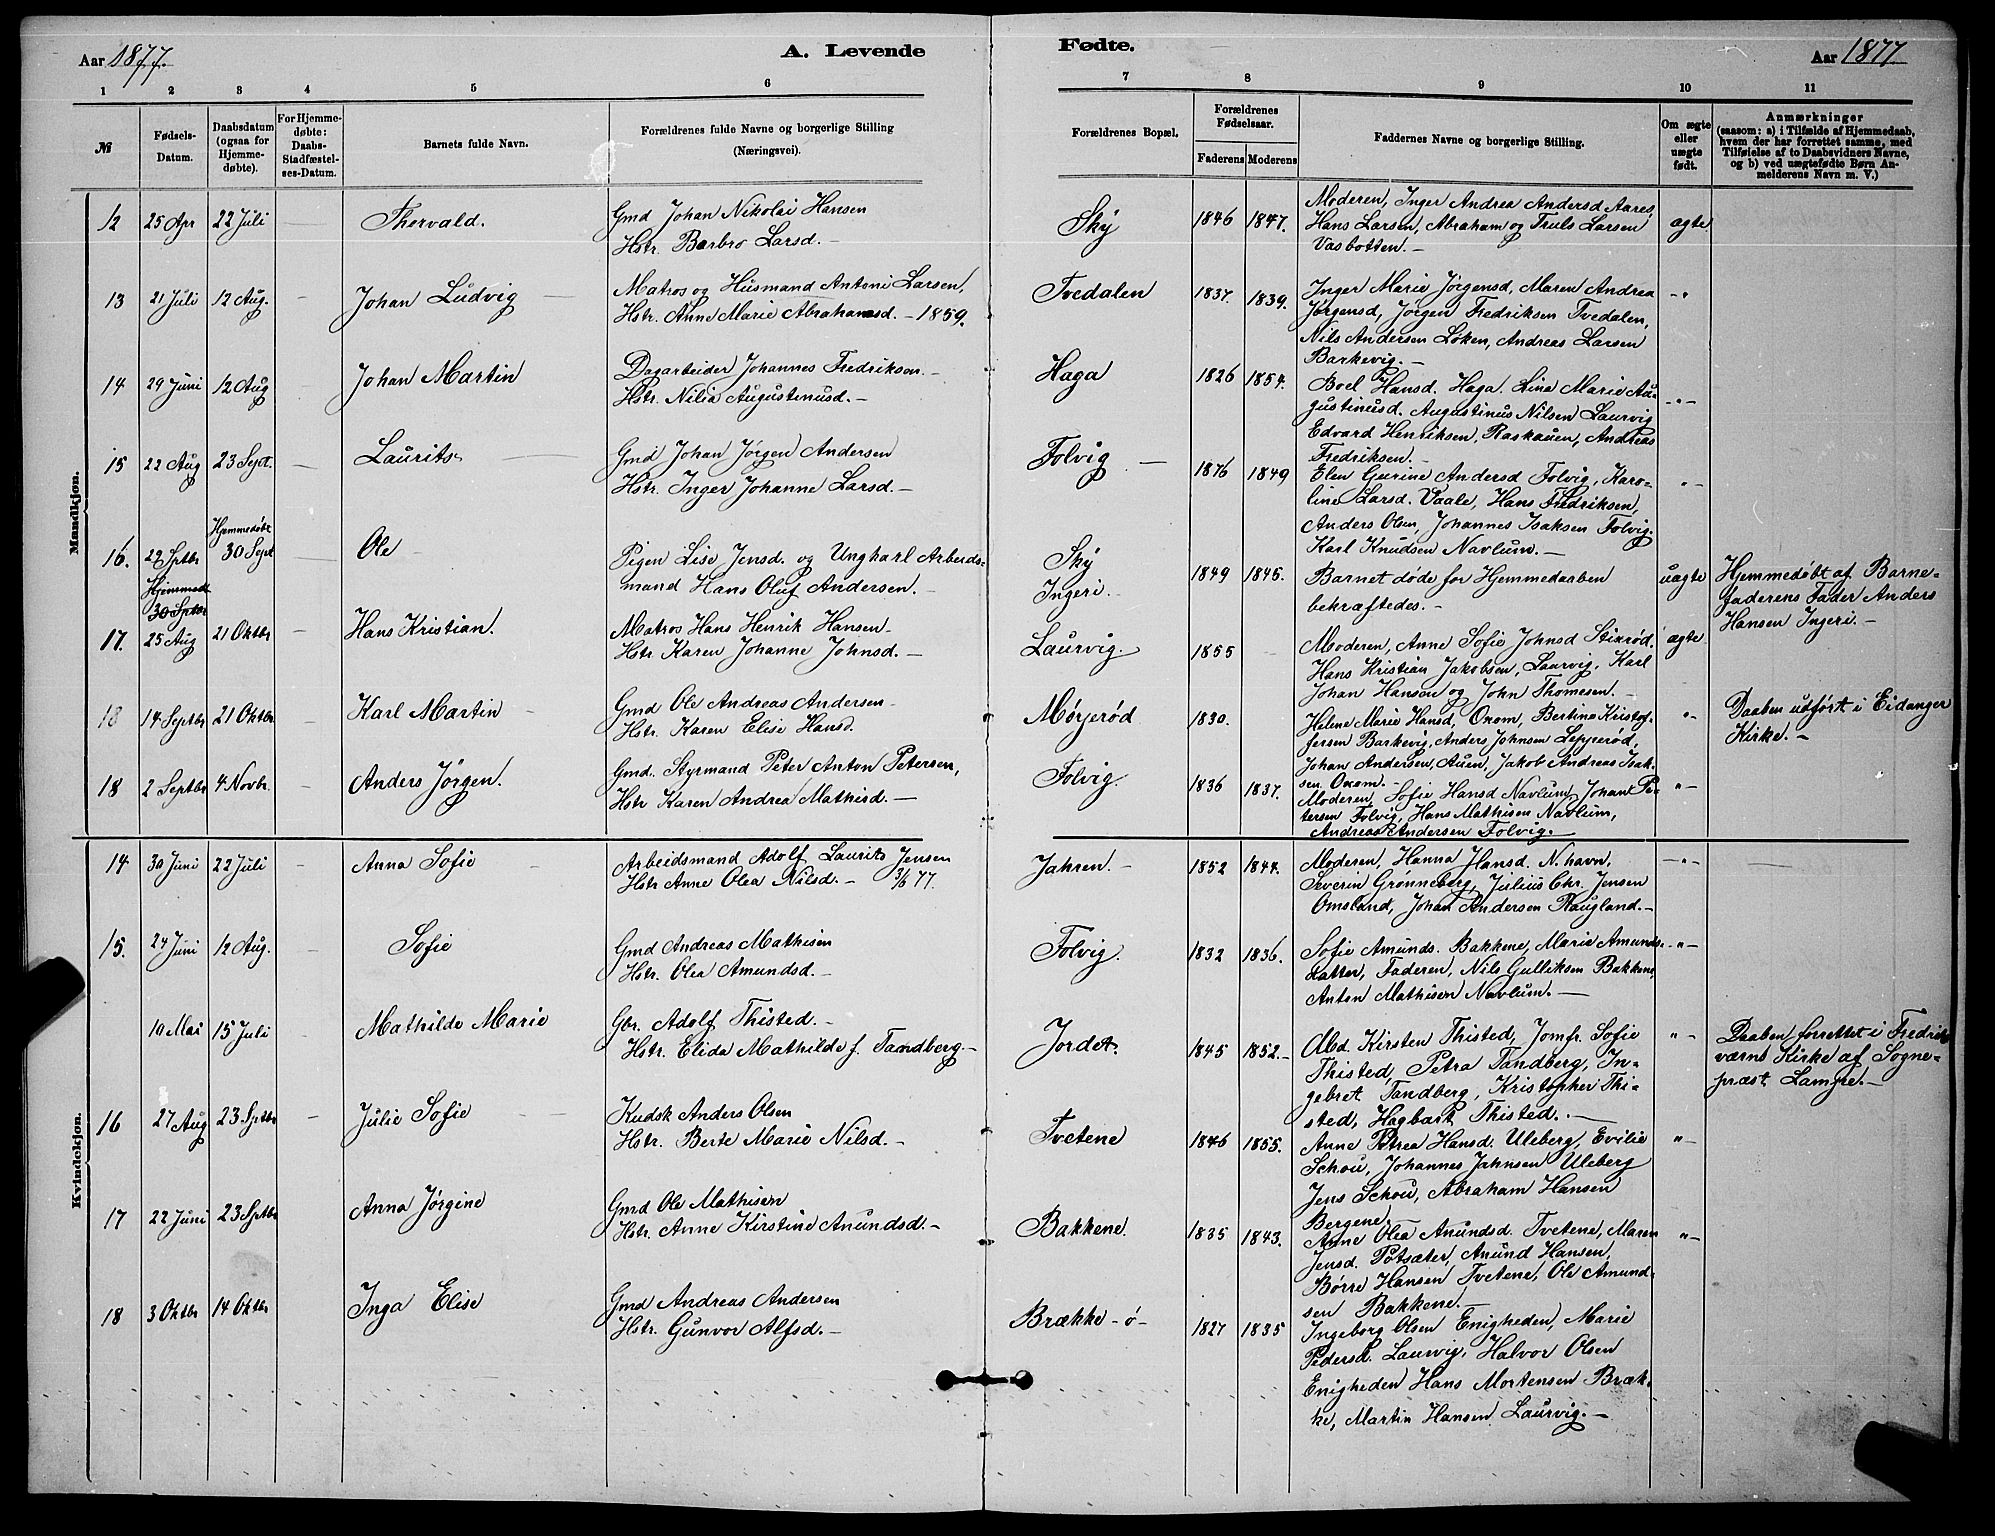 Aar 1877.
A. Levende
Fødte.
Aar 1877
1 2 3 4 5 6 7 8 9 10 11
№
Fødsels-Datum.
Daabsdatum (ogsaa for Hjemmedøbte).
For Hjemmedøbte: Daabs-Stadfæstelses-Datum.
Barnets fulde Navn.
Forældrenes fulde Navne og borgerlige Stilling
(Næringsvei).
Forældrenes Bopæl.
Forældrenes Fødselsaar.
Faderens Moderens
Faddernes Navne og borgerlige Stilling.
Om ægte eller uægte født.
Anmærkninger
(saasom: a) i Tilfælde af Hjemmedaab,
hvem der har forrettet samme, med
Tilføielse af to Daabsvidners Navne,
og b) ved uægtefødte Børn Anmelderens Navn m. V.)
Mandkjøn.
12 25 Apr 22 Juli Thorvald. Gmd Johan Nikolai Hansen
Hstr. Barbro Larsd. –
Sky 1846 1847. Moderen, Inger Andrea Andersd Aares,
Hans Larsen, Abraham og Truls Larsen
Vasbotten. –
ægte
13 21 Juli 12 Aug. Johan Ludvig Matros og Husmand Antoni Larsen,
Hstr. Anne Marie Abrahamsd. – 1859.
Tvedalen 1837. 1839. Inger Marie Jørgensd, Maren Andrea
Jørgensd, Jørgen Fredriksen Tvedalen,
Nils Andersen Løken, Andreas Larsen
Barkevig. –
– " –
14 29 Juni 12 Aug Johan Martin Dagarbeider Johannes Fredriksen. –
Hstr. Nilia Augustinusd. –
Haga 1826 1854. Boel Hansd. Haga. Lina Marie Augustinusd. Augustinus Nilsen Laurvig
Edvard Henriksen, Raskauen, Andreas
Fredriksen. –
– " –
15 22 Aug 23 Sept. Laurits Gmd Johan Jørgen Andersen
Hstr. Inger Johanne Larsd. –
Folvig – 1876 1849 Elen Gurine Andersd Folvig, Karoline Larsd. Vaale, Hans Fredriksen,
Anders Olsen, Johannes Isaksen Folvig.
Karl Knudsen Navlum. –
" –
16. 22 Sptbr Hjemmedøbt 30 Sept Ole Pigen Lise Jensd. og Ungkarl Arbeidsmand Hans Oluf Andersen. –
Hjemmed 30 Sptbr
Sky
Ingeri. –
1849 1845. Barnet døde før Hjemmedaaben
bekræftedes. –
uægte Hjemmedøbt af Barnefaderens Fader Anders
Hansen Ingeri. –
17. 25 Aug 21 Oktbr Hans Kristian. Matros Hans Henrik Hansen –
Hstr. Karen Johanne Johnsd. –
Laurvig. 1855 Moderen, Anne Sofie Johnsd Stixrød
Hans Kristian Jakobsen, Laurvig, Karl
Johan Hansen og John Thomesen. –
ægte
18 14 Septbr 21 Oktbr Karl Martin Gmd Ole Andreas Andersen –
Hstr. Karen Elise Hansd.
Mørjerød 1830. Helene Marie Hansd, Oxom, Bertine Kristoffersen Barkevig, Anders Johnsen Lepperød,
Johan Andersen, Auen, Jakob Andreas Isaksen Oxom.
" – Daaben udført i Eidanger
Kirke. –
18 2 Septbr 4 Novbr. Anders Jørgen. Gmd. Styrmand Peter Anton Petersen,
Hstr Karen Andrea Mathisd. –
Folvig. 1836 1837. Moderen, Sofie Hansd Navlum, Johan Petersen Folvig, Hans Mathisen Navlum,
Andreas Andersen Folvig.
" –
Kvindekjøn.
14 30 Juni 22 Juli Anna Sofie Arbeidsmand Adolf Laurits Jensen
Hstr Anne Olea Nilsd. – 3/6 77.
Jahren. – 1852 1844. Moderen, Hanna Hansd. N.havn,
Severin Grønneberg, Julius Chr. Jensen
Omsland, Johan Andersen Raugland. –
– " –
15. 24 Juni 12 Aug. Sofie Gmd Andreas Mathisen
Hstr. Olea Amundsd. –
Folvig. 1832 1836. Sofie Amunds. Bakkene, Marie Amundsdatter, Faderen, Nils Gulliksen Bakkene,
Anton Mathisen Navlum. –
– " –
19 Mai 15 Juli Mathilde Marie Gbr. Adolf Thisted. –
Hstr. Elida Mathilde f. Tandberg. –
Jordet. 1845 1852. – Mad. Kirsten Thisted, Jomfr. Sofie
Thisted, Petra Tandberg, Ingebret Tandberg, Kristopher Thisted, Hagbart Thisted. –
" – Daaben forrettet i Fredriksværns Kirke af Sognepræst Lampe. –
16 27 Aug 23 Sptbr Julie Sofie Kudsk Anders Olsen
Hstr. Berte Marie Nilsd. –
Tvetene 1846 1855. Anne Petrea Hansd. Uleberg, Evilie
Schou, Johannes Jahnsen Uleberg
Jens Schou, Abraham Hansen
Bergene,
" –
17 22 Juni 23 Sptbr Anna Jørgine Gmd Ole Mathisen
Hstr. Anne Kirstine Anundsd. –
Bakkene. 1835 1843. Anne Olea Anundsd. Tvetene, Maren
Jensd. Pøtsæter, Anund Hansen,
Børre Hansen Tvetene, Ole Amundsen Bakkene. –
" –
18 3 Oktbr 14 Oktbr Inga Elise Gmd Andreas Andersen
Hstr. Gunvor Alfsd. –
Brække-ø– 1827 1835 Ingeborg Olsen Enigheden, Marie
Pedersd. Laurvig, Halvor Olsen
Enigheden Hans Mortensen Brække, Martin Hansen Laurvig. –